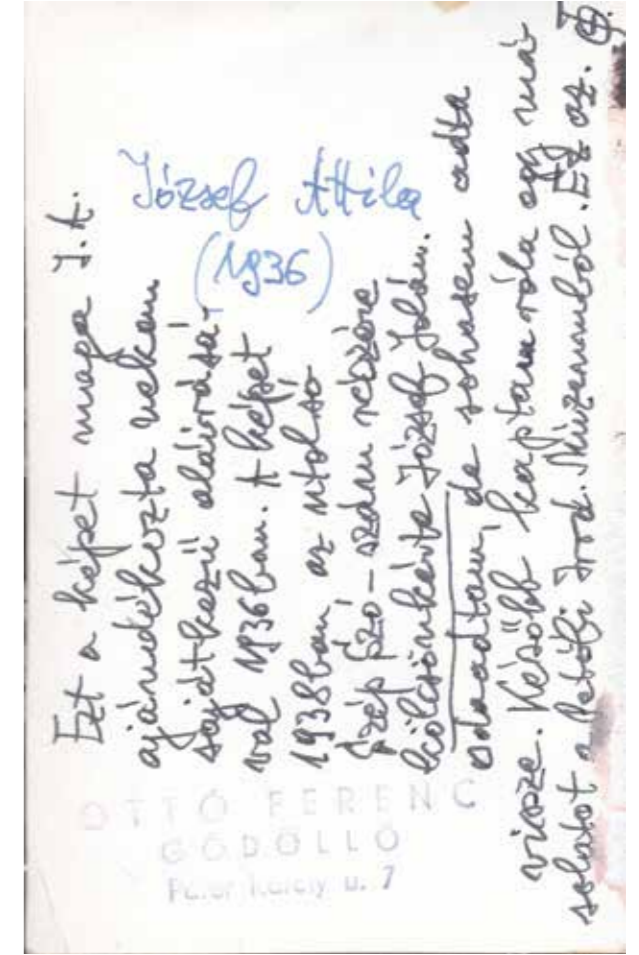 József Attila
(1936)
Ezt a képet maga J.A.
ajándékozta nekem
sajátkezű aláírásá-
val 1936ban. A képet
1938ban az utolsó
Szép Szó-szám részére
kölcsönkérte József Jolán.
odaadtam, de sohasem adta
vissza. Később kaptam róla egy má-
solatot a Petőfi Irod. Múzeumból. Ez az.
OTTÓ FERENC
GÖDÖLLŐ
Páter Károly u. 7